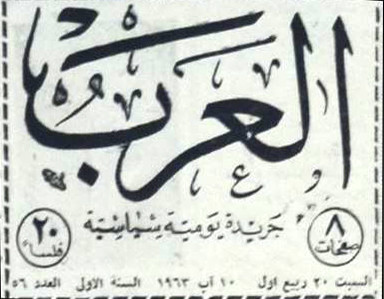 العرب
٨ صفحات
جريدة يومية سياسية
٢٠ فلساً
السبت ٢٠ ربيع اول ١٠ آب ١٩٦٣ السنة الاولى العدد ٥٦